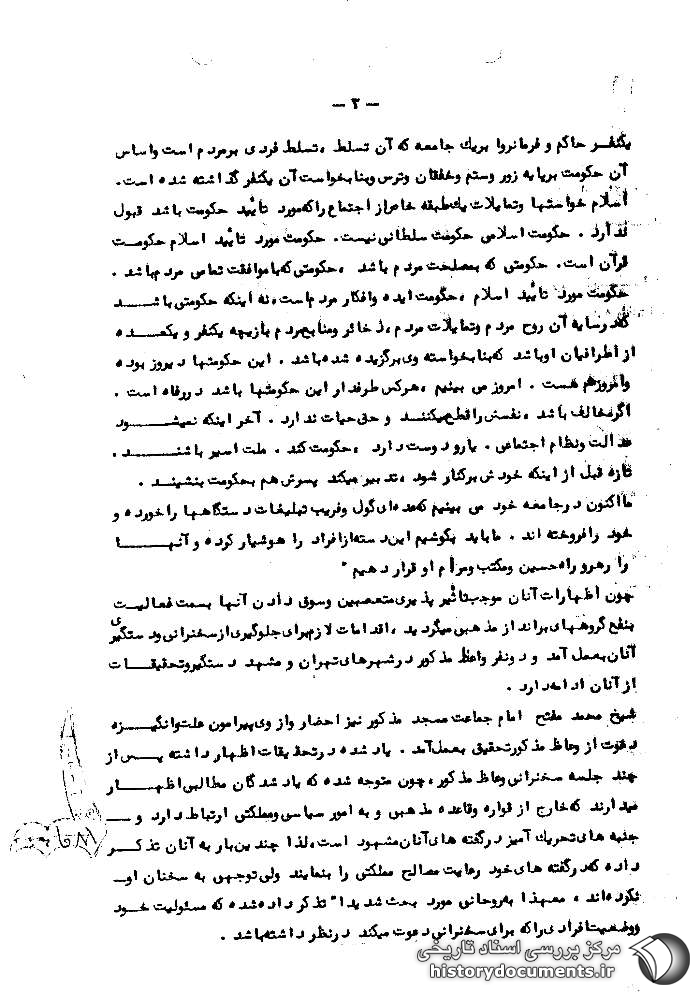 - ۲ -
یکنفر حاکم و فرمانروا بریک جامعه که آن تسلط ، تسلط فردی بر مردم است واساس
آن حکومت برپایه زور وستم وخفقان وترس وبنابخواست آن یکنفر گذاشته شده است.
اسلام خواستها وتمایلات یك طبقه خاص از اجتماع راکه مورد تأیید حکومت باشد قبول
ندارد . حکومت اسلامی حکومت سلطانی نیست. حکومت مورد تأیید اسلام حکومت
قرآن است. حکومتی که بمصلحت مردم باشد ، حکومتی که با موافقت تمامی مردم باشد .
حکومت مورد تأیید اسلام ، حکومت ایده وافکار مردم است، نه اینکه حکومتی باشد
که در سایه آن روح مردم وتمایلات مردم ، ذخائر ومنابع مردم بازیچه یکنفر و یکعده
از اطرافیان اوباشد که بنابخواسته وی برگزیده شده باشد . این حکومتها دیروز بوده
وامروز هم هست . امروز می بینیم ، هرکس طرفدار این حکومتها باشد در رفاه است .
اگر مخالف باشد ، نفسش را قطع میکنند و حق حیات ندارد . آخر اینکه نمیشود
عدالت ونظام اجتماعی . یارو دوست دارد ، حکومت کند . ملت اسیر باشند .
تازه قبل از اینکه خودش برکنار شود ، تدبیر میکند پسرش هم بحکومت بنشیند .
ما اکنون در جامعه خود می بینیم که عده ای گول وفریب تبلیغات دستگاهها را خورده و
خود را فروخته اند . ما باید بکوشیم این دسته از افراد را هوشیار کرده و آنها
را رهرو راه حسین ومکتب ومرام او قرار دهیم "
چون اظهارات آنان موجب تأثیر پذیری متعصبین وسوق دادن آنها بسمت فعالیت
بنفع گروههای برانداز مذهبی میگردید ، اقدامات لازم برای جلوگیری از سخنرانی ودستگیری
آنان بعمل آمد و دونفر واعظ مذکور در شهرهای تهران و مشهد دستگیر وتحقیقات
از آنان ادامه دارد .
شیخ محمد مفتح امام جماعت مسجد مذکور نیز احضار واز وی پیرامون علت وانگیزه
دعوت از وعاظ مذکور تحقیق بعمل آمد . یاد شده در تحقیقات اظهار داشته پس از
چند جلسه سخنرانی وعاظ مذکور ، چون متوجه شده که یاد شدگان مطالبی اظهار
میدارند که خارج از قواره وقاعده مذهبی و به امور سیاسی ومملکتی ارتباط دارد و
جنبه های تحریك آمیز در گفته های آنان مشهود است ، لذا چندین بار به آنان تذکر
داده که در گفته های خود رعایت مصالح مملکتی را بنمایند ولی توجهی به سخنان او
نکرده اند ، معهذا به روحانی مورد بحث شدیدا" تذکر داده شده که مسئولیت خود
ووضعیت افرادی را که برای سخنرانی دعوت میکند در نظر داشته باشد .
مرکز بررسی اسناد تاریخی
historydocuments.ir